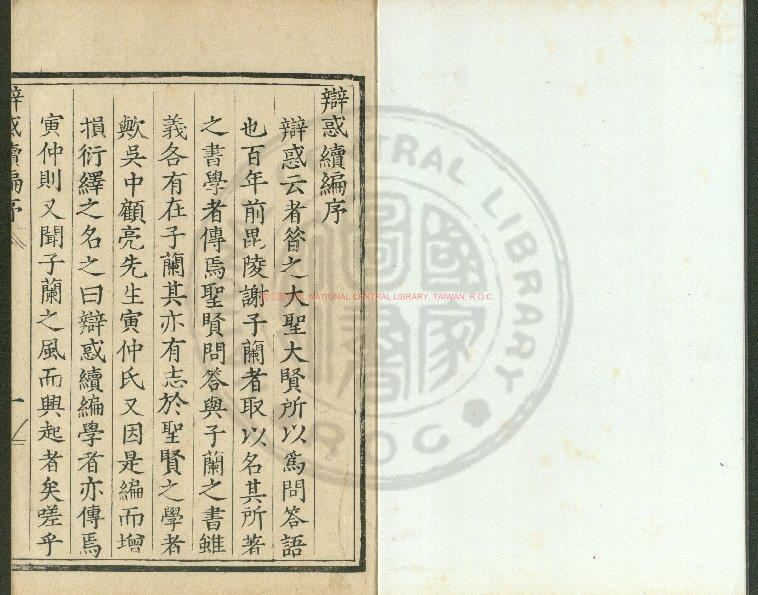 辯惑續編序
辯惑云者昔之大聖大賢所以爲問答語
也百年前毘陵謝子蘭者取以名其所著
之書學者傳焉聖賢問答與子蘭之書雖
義各有在子蘭其亦有志於聖賢之學者
歟吳中顧亮先生寅仲氏又因是編而增
損衍繹之名之曰辯惑續編學者亦傳焉
寅仲則又聞子蘭之風而興起者矣嗟乎
辯惑續編序
一
國家圖書館
NATIONAL CENTRAL LIBRARY, TAIWAN, R.O.C.
CENTRAL LIBRARY
R.O.C